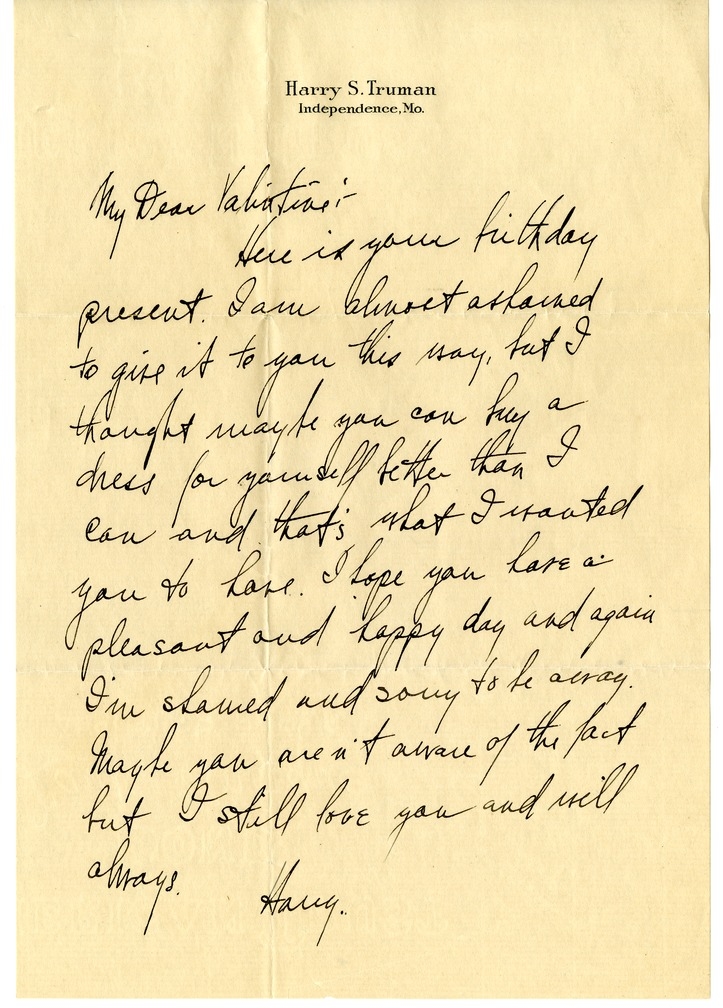 Harry S. Truman
Independence, Mo.
My Dear Valintine:-
Here is your birthday
present. I am almost ashamed
to give it to you this way, but I
thought maybe you can buy a
dress for yourself better than I
can and that's what I wanted
you to have. I hope you have a
pleasant and happy day and again
I'm shamed and sorry to be away.
Maybe you aren't aware of the fact
but I still love you and will
always.
Harry.